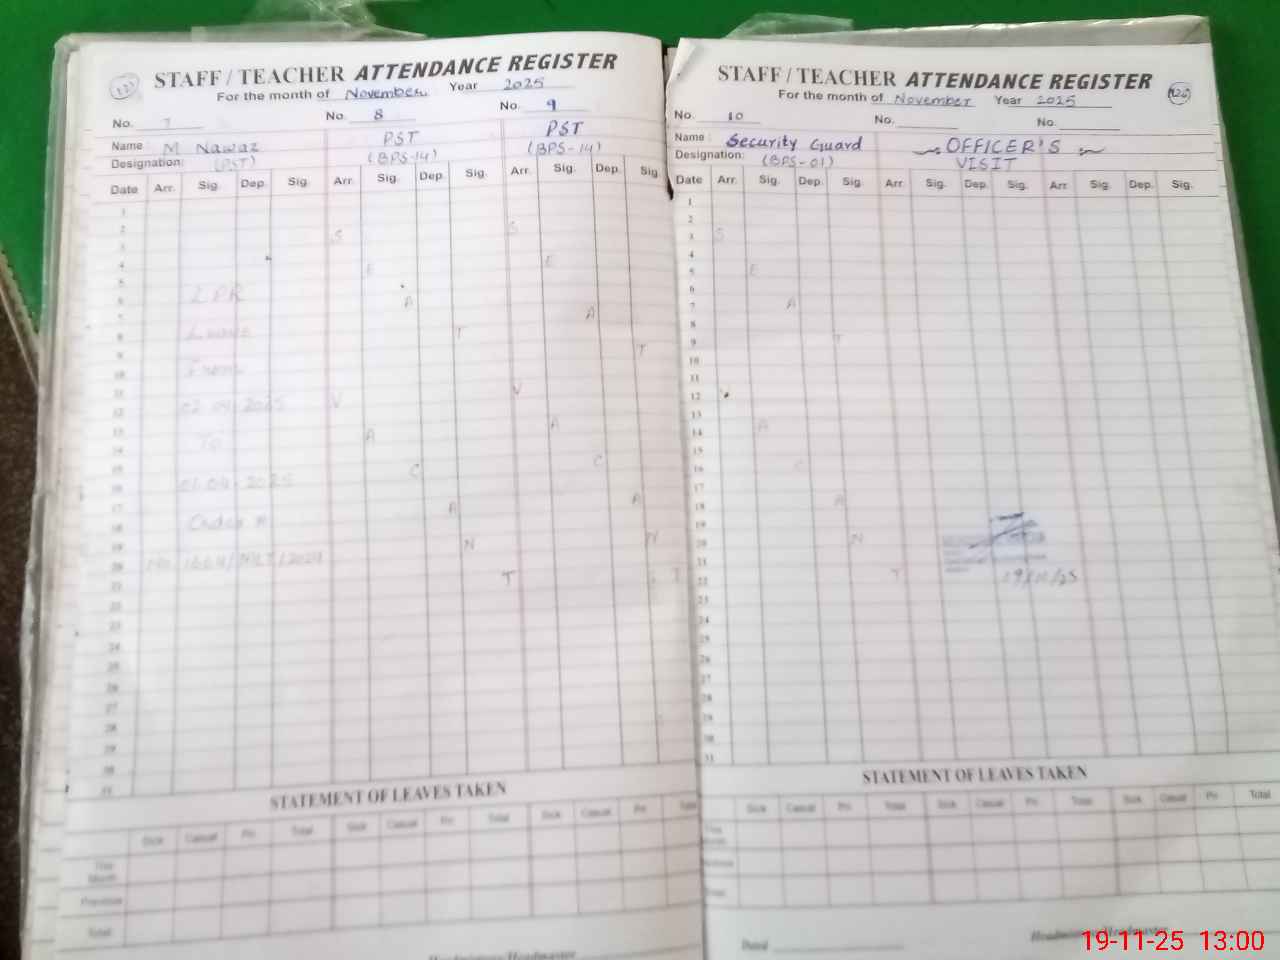 STAFF / TEACHER ATTENDANCE REGISTER
For the month of November Year 2025
No. 7 No. 8 No. 9
Name : M Nawaz PST PST
Designation: (PST) (BPS-14) (BPS-14)
Date Arr. Sig. Dep. Sig. Arr. Sig. Dep. Sig. Arr. Sig. Dep. Sig.
1
2
3
4
5
6
7
8
9
10
11
12
13
14
15
16
17
18
19
20
21
22
23
24
25
26
27
28
29
30
31
S E A T
V A C A N T
S E A T
V A C A N T
LPR
Leave
From
02 04 2025
To
01.04.2025
Order #
STATEMENT OF LEAVES TAKEN
Sick Casual Pri Total Sick Casual Pri Total Sick Casual Pri Total
This Month
Previous
Total:
Headmistress/Headmaster
STAFF / TEACHER ATTENDANCE REGISTER
For the month of November Year 2025
No. 10 No. No.
Name : Security Guard OFFICER'S
Designation: (BPS-01) VISIT
Date Arr. Sig. Dep. Sig. Arr. Sig. Dep. Sig. Arr. Sig. Dep. Sig.
1
2
3
4
5
6
7
8
9
10
11
12
13
14
15
16
17
18
19
20
21
22
23
24
25
26
27
28
29
30
31
S E A T
A C A N T
STATEMENT OF LEAVES TAKEN
Sick Casual Pri Total Sick Casual Pri Total Sick Casual Pri Total
Dated
Headmistress/Headmaster
19-11-25 13:00